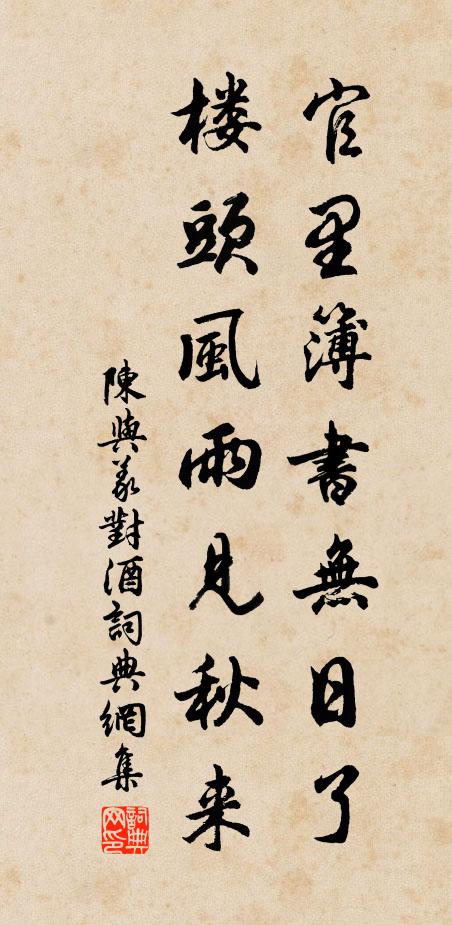 官里簿書無日了
楼頭風雨見秋来
陳與義對酒詞典網集
詞典网印